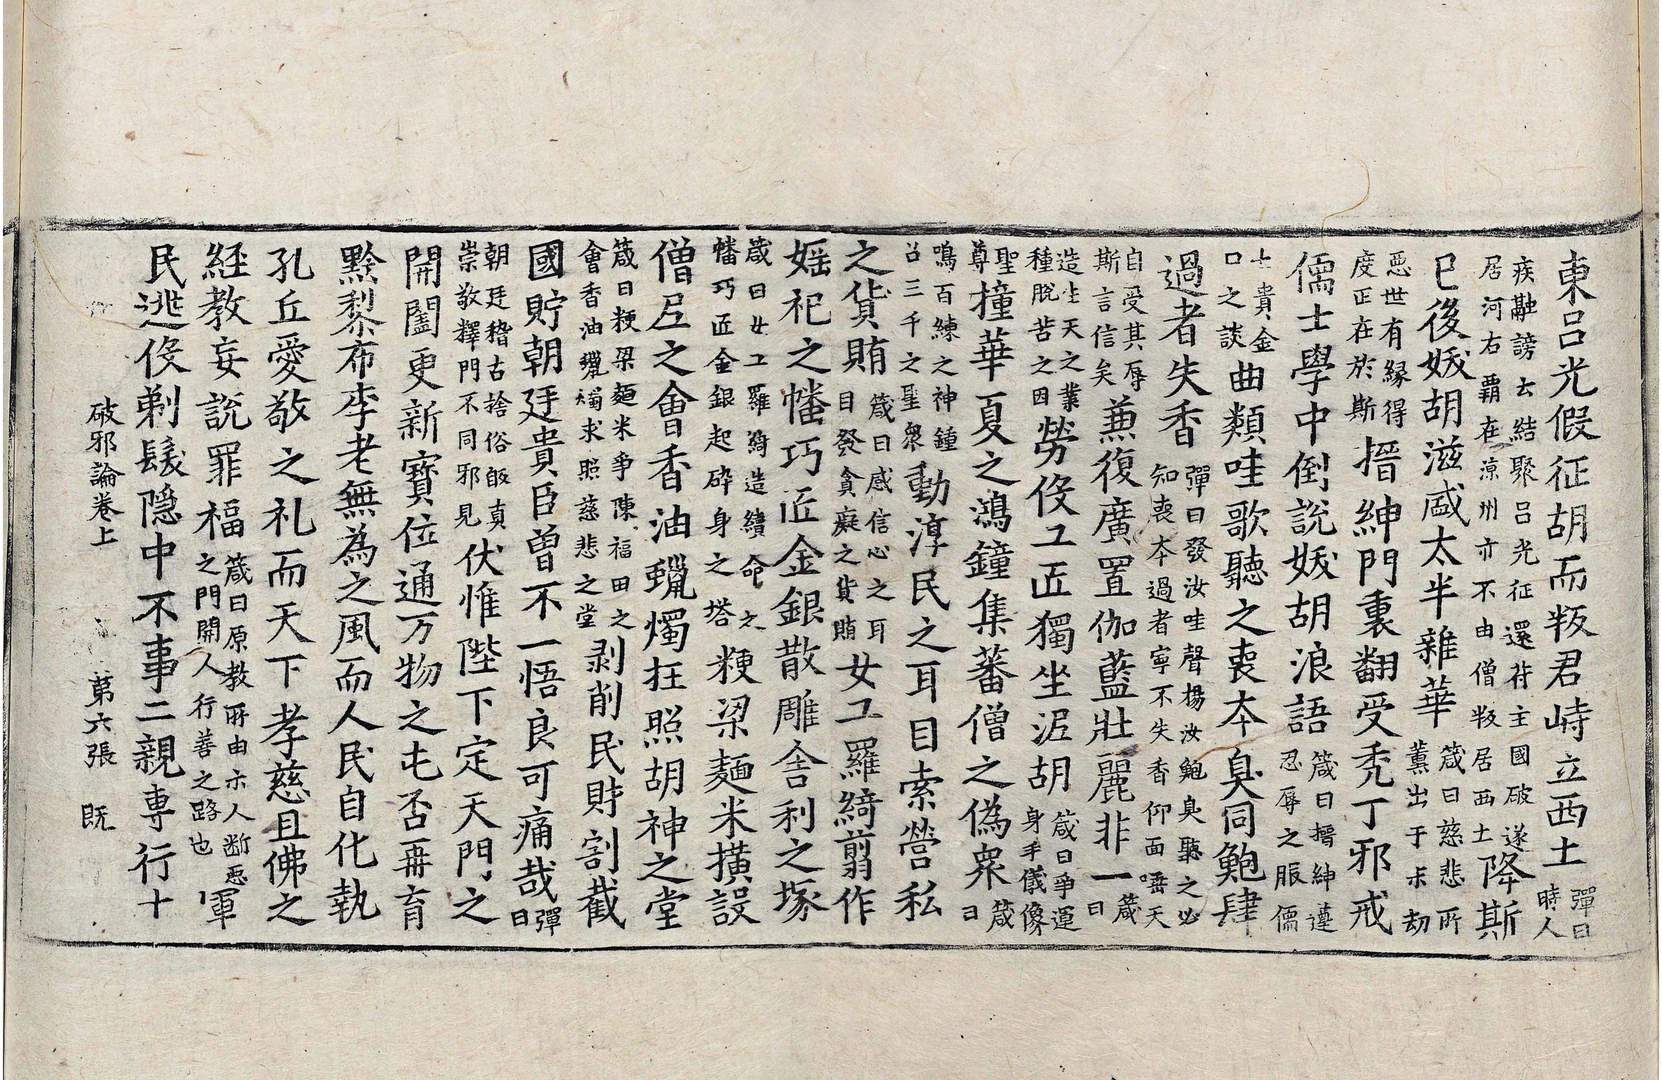 東呂光假征胡而叛君峙立西土彈曰時人
疾融謗去結聚呂光征還苻主國破遂居河右覇在涼州亦不由僧叛居西土降斯
已後妖胡滋盛太半雜華箴曰慈悲所薰出于末劫
惡世有緣得度正在於斯搢紳門裏翻受秃丁邪戒
儒士學中倒說妖胡浪語箴曰搢紳蓮忍辱之服儒
士貴金口之談曲類哇歌聽之喪本臭同鮑肆
過者失香彈曰發汝哇聲楊汝鮑臭聽之必知喪本過者寧不失香仰面唾天
自受其辱斯言信矣兼復廣置伽藍壯麗非一箴曰
造生天之業種脫苦之因勞伇工匠獨坐泥胡箴曰爭運身手儀像
聖尊撞華夏之鴻鐘集蕃僧之偽衆箴曰
鳴百練之神鍾召三千之聖衆動淳民之耳目索營私
之貨賄箴曰感信心之耳目發貪癡之貨賄女工羅綺翦作
婬祀之幡巧匠金銀散雕舍利之塚
箴曰女工羅綺造續命之幡巧匠金銀起碎身之塔粳粱麵米橫設
僧尼之會香油蠟燭狂照胡神之堂
箴曰粳粱麵米爭陳福田之會香油蠟燭求照慈悲之堂剥削民財割截
國貯朝廷貴臣曾不一悟良可痛哉彈曰
朝廷稽古捨俗皈真崇敬釋門不同邪見伏惟陛下定天門之
開闔更新寶位通万物之屯否再育
黔黎布李老無為之風而人民自化執
孔丘愛敬之礼而天下孝慈且佛之
經教妄說罪福箴曰原教所由示人断惡之門開人行善之路也軍
民逃伇剃髮隱中不事二親専行十
破邪論卷上 第六張 既